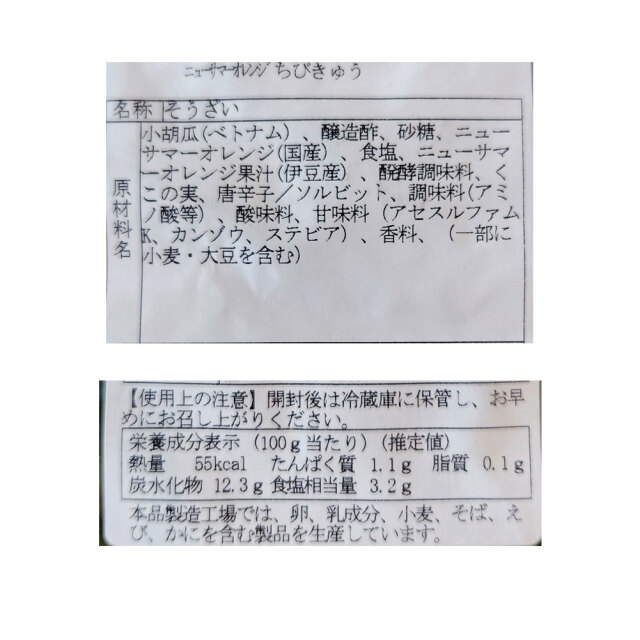 ニューサマーオレンジちびきゅう
名称 そうざい
原材料名
小胡瓜(ベトナム)、醸造酢、砂糖、ニュー
サマーオレンジ(国産)、食塩、ニューサマ
ーオレンジ果汁(伊豆産)、醗酵調味料、く
この実、唐辛子／ソルビット、調味料(アミ
ノ酸等)、酸味料、甘味料(アセスルファム
K、カンゾウ、ステビア)、香料、(一部に
小麦・大豆を含む)
【使用上の注意】開封後は冷蔵庫に保管し、お早
めにお召し上がりください。
栄養成分表示(100g当たり)(推定値)
熱量 55kcal たんぱく質 1.1g 脂質 0.1g
炭水化物 12.3g 食塩相当量 3.2g
本品製造工場では、卵、乳成分、小麦、そば、え
び、かにを含む製品を生産しています。